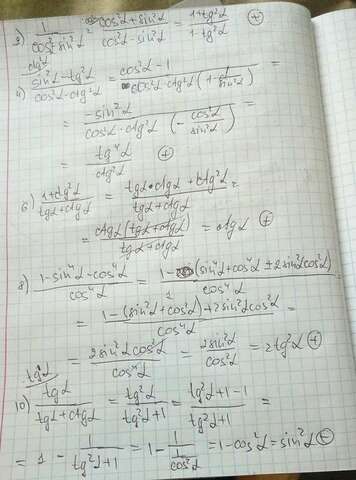 3) 1/(cos²α-sin²α) = (cos²α+sin²α)/(cos²α-sin²α) = (1+tg²α)/(1-tg²α) (+)
4) (sin²α-tg²α)/(cos²α-ctg²α) = =
= (-sin²α)/(cos²α·ctg²α (-cos²α/sin²α)) =
= tg⁴α/ctg²α (+)
6) (1+ctg²α)/(tgα+ctgα) = (tgα·ctgα+ctg²α)/(tgα+ctgα) =
= ctgα(tgα+ctgα)/(tgα+ctgα) = ctgα (+)
8) (1-sin⁴α-cos⁴α)/cos⁴α = (1-(sin⁴α+cos⁴α±2sin²αcos²α))/cos⁴α =
= (1-(sin²α+cos²α)+2sin²αcos²α)/cos⁴α =
= 2sin²αcos²α/cos⁴α = 2sin²α/cos²α = 2tg²α (+)
10) tgα/(tgα+ctgα) = tg²α/(tg²α+1) = (tg²α+1-1)/(tg²α+1) =
= 1 - 1/(tg²α+1) = 1 - 1/(1/cos²α) = 1-cos²α = sin²α (+)